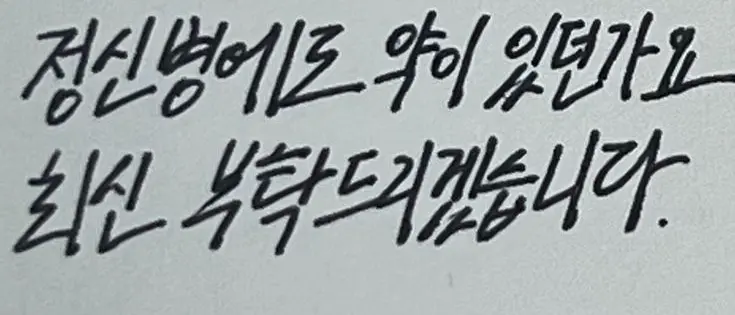 정신병에도 약이 있던가요
회신 부탁드리겠습니다.